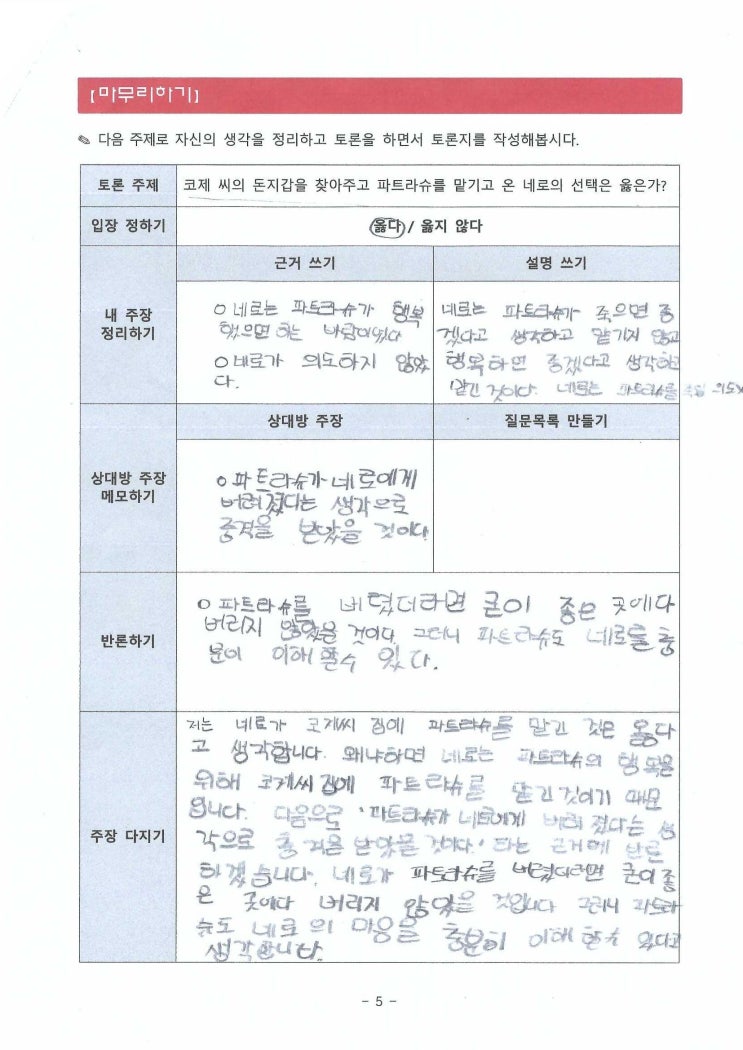 [마무리하기]
✎ 다음 주제로 자신의 생각을 정리하고 토론을 하면서 토론지를 작성해봅시다.
토론 주제
코제 씨의 돈지갑을 찾아주고 파트라슈를 맡기고 온 네로의 선택은 옳은가?
입장 정하기
옳다 / 옳지 않다
근거 쓰기
설명 쓰기
내 주장
정리하기
○ 네로는 파트라슈가 행복
했으면 하는 바람이었다
○ 네로가 의도하지 않았
다.
네로는 파트라슈가 죽으면 좋
겠다고 생각하고 맡기지 않고
행복하면 좋겠다고 생각하고
맡긴 것이다. 네로는 파트라슈를 죽일 의도가
상대방 주장
질문목록 만들기
상대방 주장
메모하기
○ 파트라슈가 네로에게
버려졌다는 생각으로
충격을 받았을 것이다
반론하기
○ 파트라슈를 버렸더라면 굳이 좋은 곳에다
버리지 않았을 것이다. 그러니 파트라슈도 네로를 충
분이 이해할수 있다.
주장 다지기
저는 네로가 코제씨 집에 파트라슈를 맡긴 것은 옳다
고 생각합니다. 왜냐하면 네로는 파트라슈의 행복을
위해 코제씨 집에 파트라슈를 맡긴것이기 때문
입니다. 다음으로 '파트라슈가 네로에게 버려졌다는 생
각으로 충격을 받았을 것이다.' 라는 근거에 반론
하겠습니다. 네로가 파트라슈를 버렸더라면 굳이 좋
은 곳에다 버리지 않았을 것입니다 그러니 파트라
슈도 네로의 마음을 충분히 이해할수 있다고
생각합니다.
- 5 -